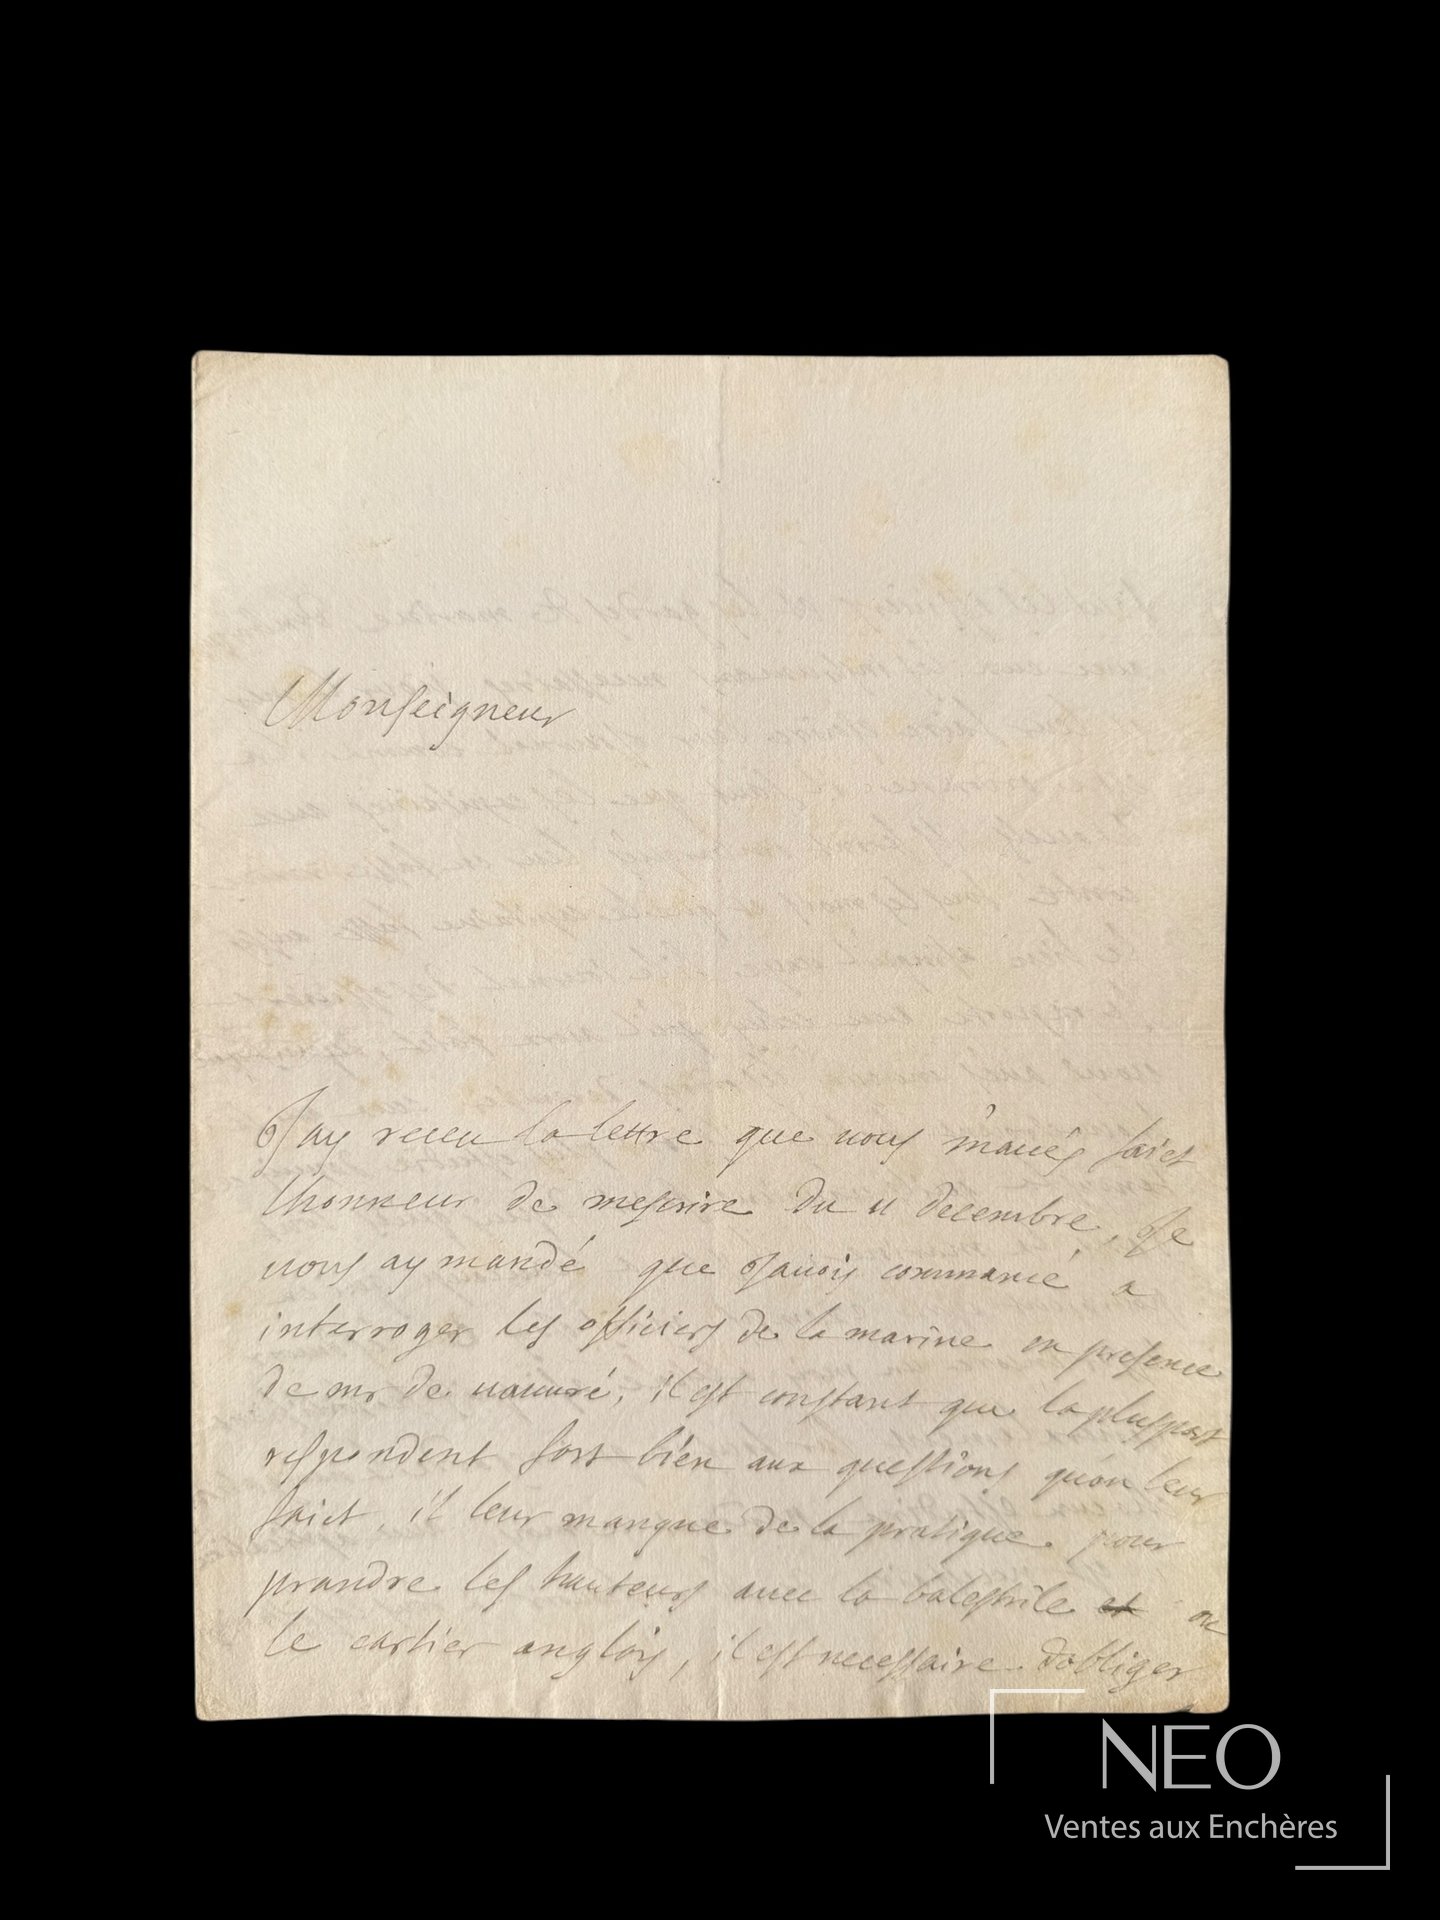 Monseigneur
Jay receu la lettre que vous m'avés faict
lhonneur de mescrire du 11 decembre, Je
vous ay mandé que Javois commancé a
interroger les officiers de la marine en presence
de mr de vauvré, il est constant que la pluspart
respondent fort bien aux questions qu'on leur
faict, il leur manque de la pratique pour
prandre les hauteurs avec la balestrile et ou
le cartier anglois, il est necessaire dobliger
NEO
Ventes aux Enchères